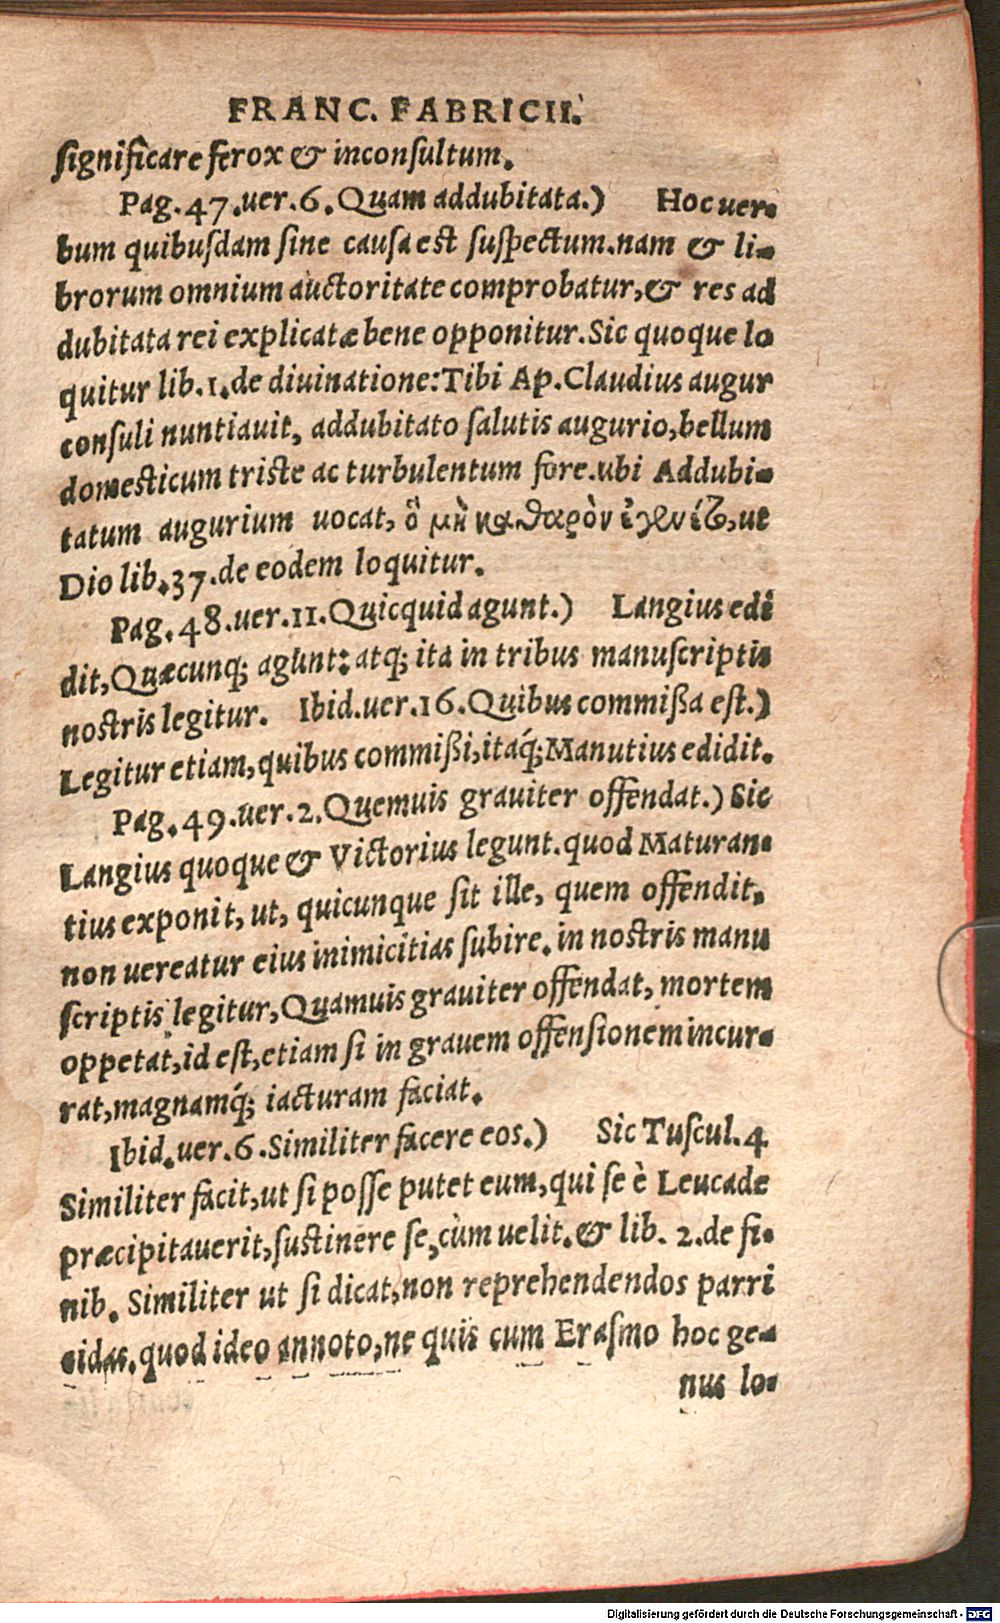 FRANC. FABRICII.
significare ferox & inconsultum.
Pag. 47. uer. 6. Quam addubitata.) Hoc uer-
bum quibusdam sine causa est suspectum. nam & li-
brorum omnium auctoritate comprobatur, & res ad
dubitata rei explicatæ bene opponitur. Sic quoque lo
quitur lib. 1. de diuinatione: Tibi Ap. Claudius augur
consuli nuntiauit, addubitato salutis augurio, bellum
domesticum triste ac turbulentum fore. ubi Addubi-
tatum augurium uocat, ὃ μὴ καθαρὸν ἐγένετο, ut
Dio lib. 37. de eodem loquitur.
Pag. 48. uer. 11. Quicquid agunt.) Langius edi
dit, Quæcunq; agunt: atq; ita in tribus manuscriptis
nostris legitur. Ibid. uer. 16. Quibus commißa est.)
Legitur etiam, quibus commißi, itaq́; Manutius edidit.
Pag. 49. uer. 2. Quemuis grauiter offendat.) Sic
Langius quoque & Victorius legunt. quod Maturan-
tius exponit, ut, quicunque sit ille, quem offendit,
non uereatur eius inimicitias subire. in nostris manu
scriptis legitur, Quamuis grauiter offendat, mortem
oppetat, id est, etiam si in grauem offensionem incur-
rat, magnamq́; iacturam faciat.
Ibid. uer. 6. Similiter facere eos.) Sic Tuscul. 4
Similiter facit, ut si posse putet eum, qui se è Leucade
præcipitauerit, sustinere se, cùm uelit. & lib. 2. de fi-
nib. Similiter ut si dicat, non reprehendendos parri
cidas. quod ideo annoto, ne quis cum Erasmo hoc ge-
nus lo-
Digitalisierung gefördert durch die Deutsche Forschungsgemeinschaft - DFG